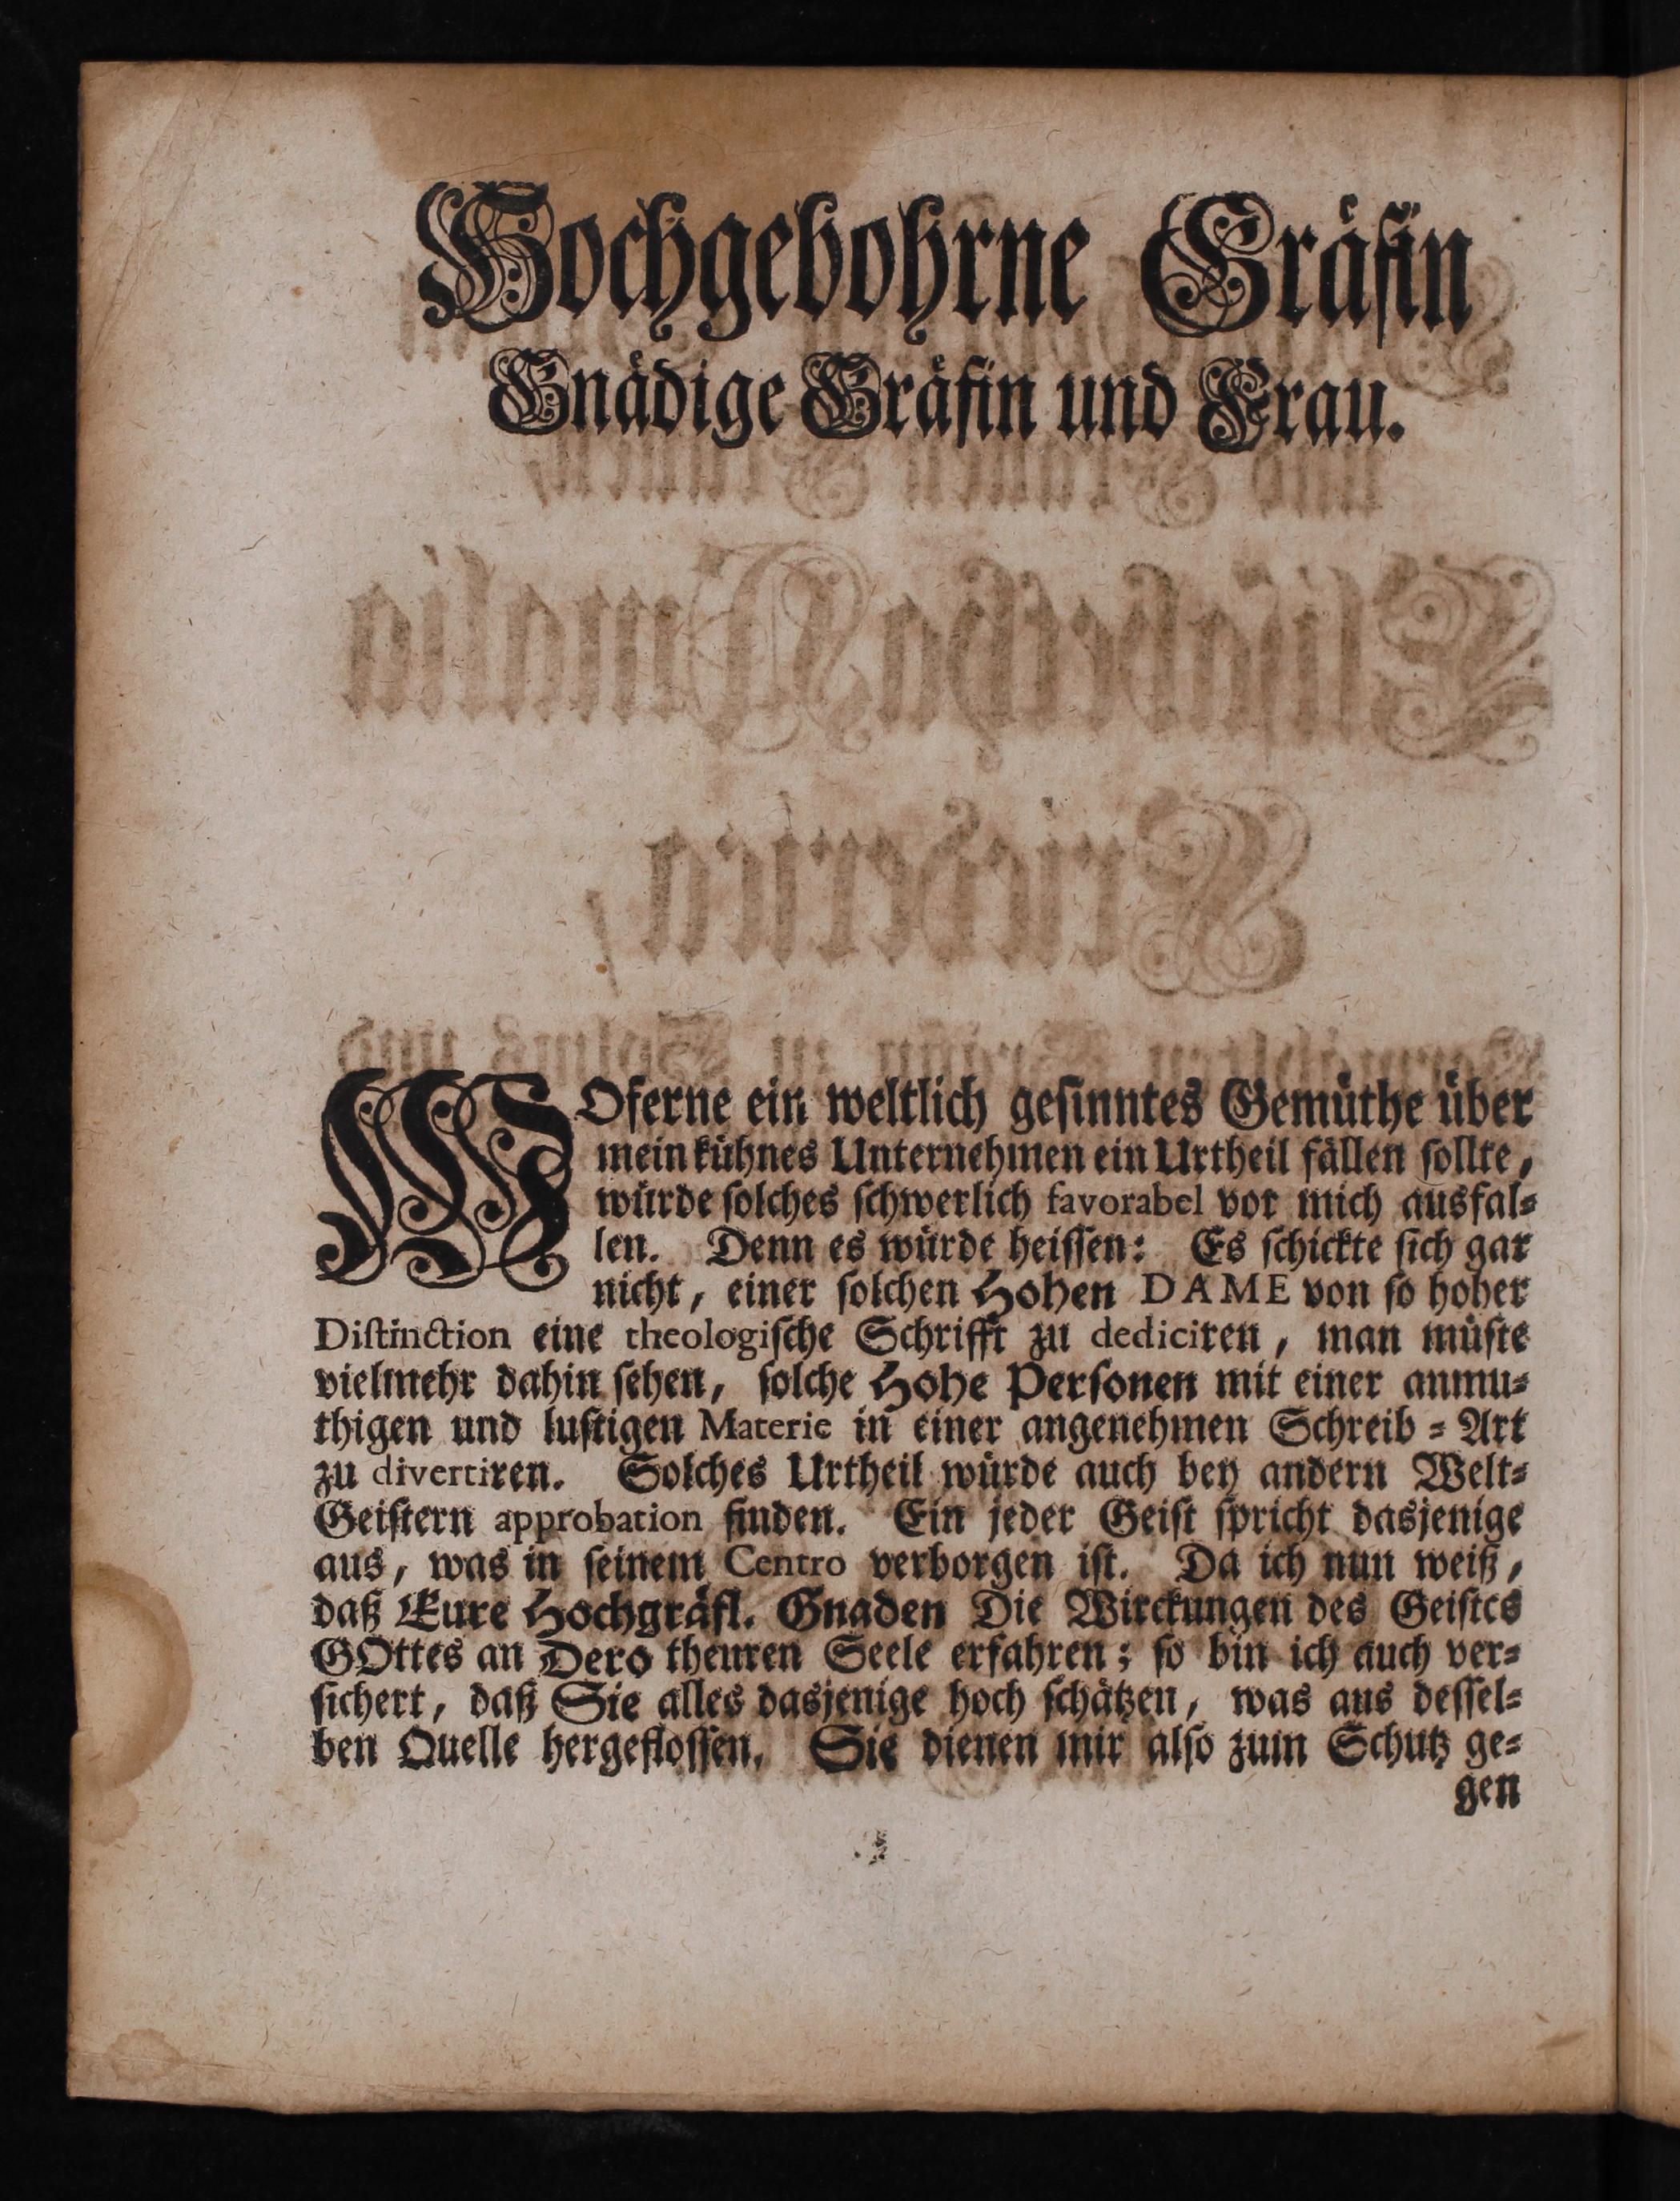 Hochgebohrne Gräfin
Gnädige Gräfin und Frau.
WOferne ein weltlich gesinntes Gemüthe über
mein kühnes Unternehmen ein Urtheil fällen sollte,
würde solches schwerlich favorabel vor mich ausfal-
len. Denn es würde heissen: Es schickte sich gar
nicht, einer solchen Hohen DAME von so hoher
Distinction eine theologische Schrifft zu dediciren, man müste
vielmehr dahin sehen, solche Hohe Personen mit einer anmu-
thigen und lustigen Materie in einer angenehmen Schreib-Art
zu divertiren. Solches Urtheil würde auch bey andern Welt-
Geistern approbation finden. Ein jeder Geist spricht dasjenige
aus, was in seinem Centro verborgen ist. Da ich nun weiß,
daß Eure Hochgräfl. Gnaden Die Wirckungen des Geistes
GOttes an Dero theuren Seele erfahren; so bin ich auch ver-
sichert, daß Sie alles dasjenige hoch schätzen, was aus dessel-
ben Quelle hergeflossen. Sie dienen mir also zum Schutz ge-
gen